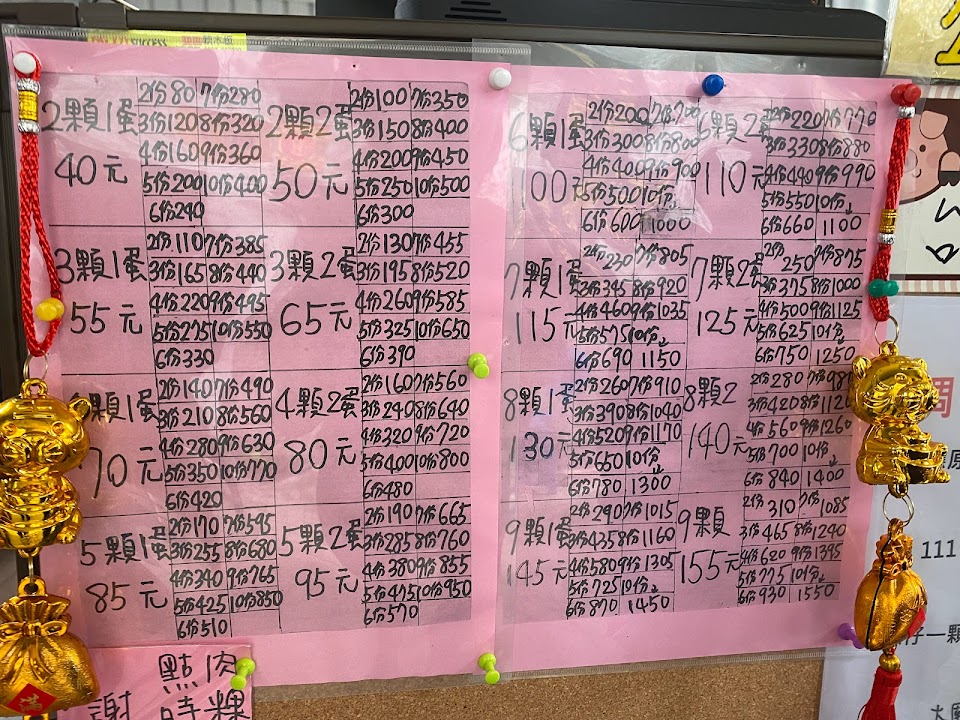 2顆1蛋
40元
2份80 7份280
3份120 8份320
4份160 9份360
5份200 10份400
6份240
2顆2蛋
50元
2份100 7份350
3份150 8份400
4份200 9份450
5份250 10份500
6份300
3顆1蛋
55元
2份110 7份385
3份165 8份440
4份220 9份495
5份275 10份550
6份330
3顆2蛋
65元
2份130 7份455
3份195 8份520
4份260 9份585
5份325 10份650
6份390
顆1蛋
70元
2份140 7份490
3份210 8份560
4份280 9份630
5份350 10份770
6份420
4顆2蛋
80元
2份160 7份560
3份240 8份640
4份320 9份720
5份400 10份800
6份480
5顆1蛋
85元
2份170 7份595
3份255 8份680
4份340 9份765
5份425 10份850
6份510
5顆2蛋
95元
2份190 7份665
3份285 8份760
4份380 9份855
5份475 10份950
6份570
6顆1蛋
100元
2份200 7份700
3份300 8份800
4份400 9份900
5份500 10份
6份600 1000
6顆2蛋
110元
2份220 7份770
3份330 8份880
4份440 9份990
5份550 10份
6份660 1100
7顆1蛋
115元
2份230 7份805
3份345 8份920
4份460 9份1035
5份575 10份
6份690 1150
7顆2蛋
125元
2份250 7份875
3份375 8份1000
4份500 9份1125
5份625 10份
6份750 1250
8顆1蛋
130元
2份260 7份910
3份390 8份1040
4份520 9份1170
5份650 10份
6份780 1300
8顆2
140元
2份280 7份98
3份420 8份1120
4份560 9份1260
5份700 10份
6份840 1400
9顆1蛋
145元
2份290 7份1015
3份435 8份1160
4份580 9份1305
5份725 10份
6份870 1450
9顆
155元
2份310 7份1085
3份465 8份1240
4份620 9份1395
5份775 10份
6份930 1550
點肉
謝時粿
111
一顆